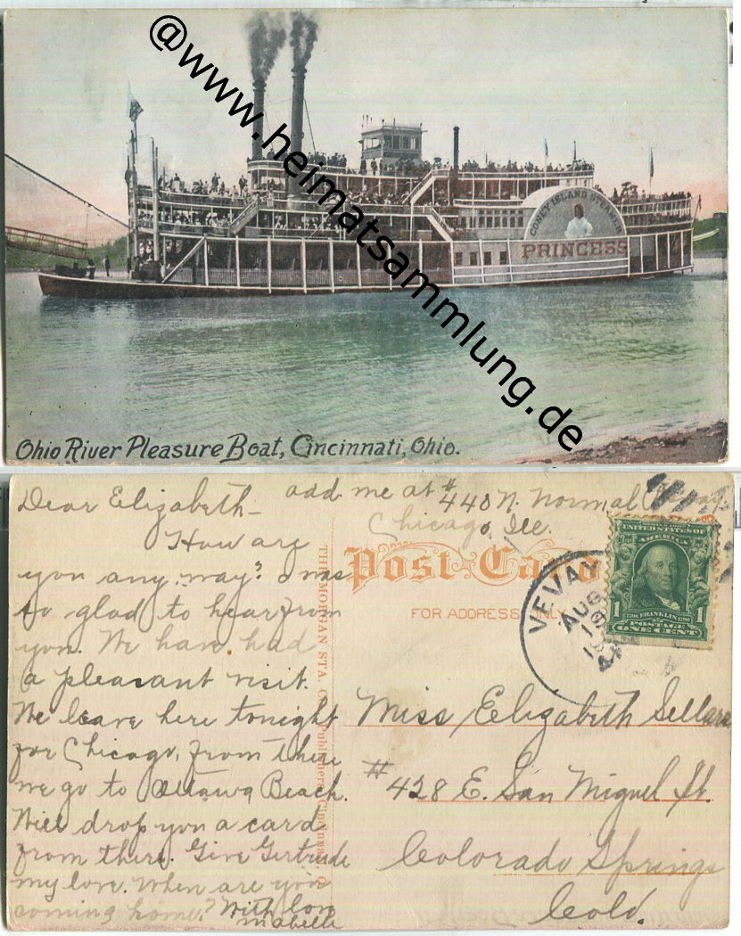 @www.heimatsammlung.de
CONEY ISLAND STEAMER
PRINCESS
Ohio River Pleasure Boat, Cincinnati, Ohio.
Dear Elizabeth-
add me at #440 N. Normal
Chicago, Ill.
How are
you any way? I was
so glad to hear from
you. We have had
a pleasant visit.
We leave here tonight
for Chicago, from there
we go to Ottawa Beach.
Will drop you a card
from there. Give Gertrude
my love. When are you
coming home? With love
Mabelle
THE MORGAN STA. CO. Publishers, Cincinnati, O.
Post Card
FOR ADDRESS ONLY
VEVAY
AUG
UNITED STATES OF
AMERICA
1 1
FRANKLIN
POSTAGE
ONE CENT
Miss Elizabeth Sellars
#428 E. San Miguel St.
Colorado Springs
Colo.